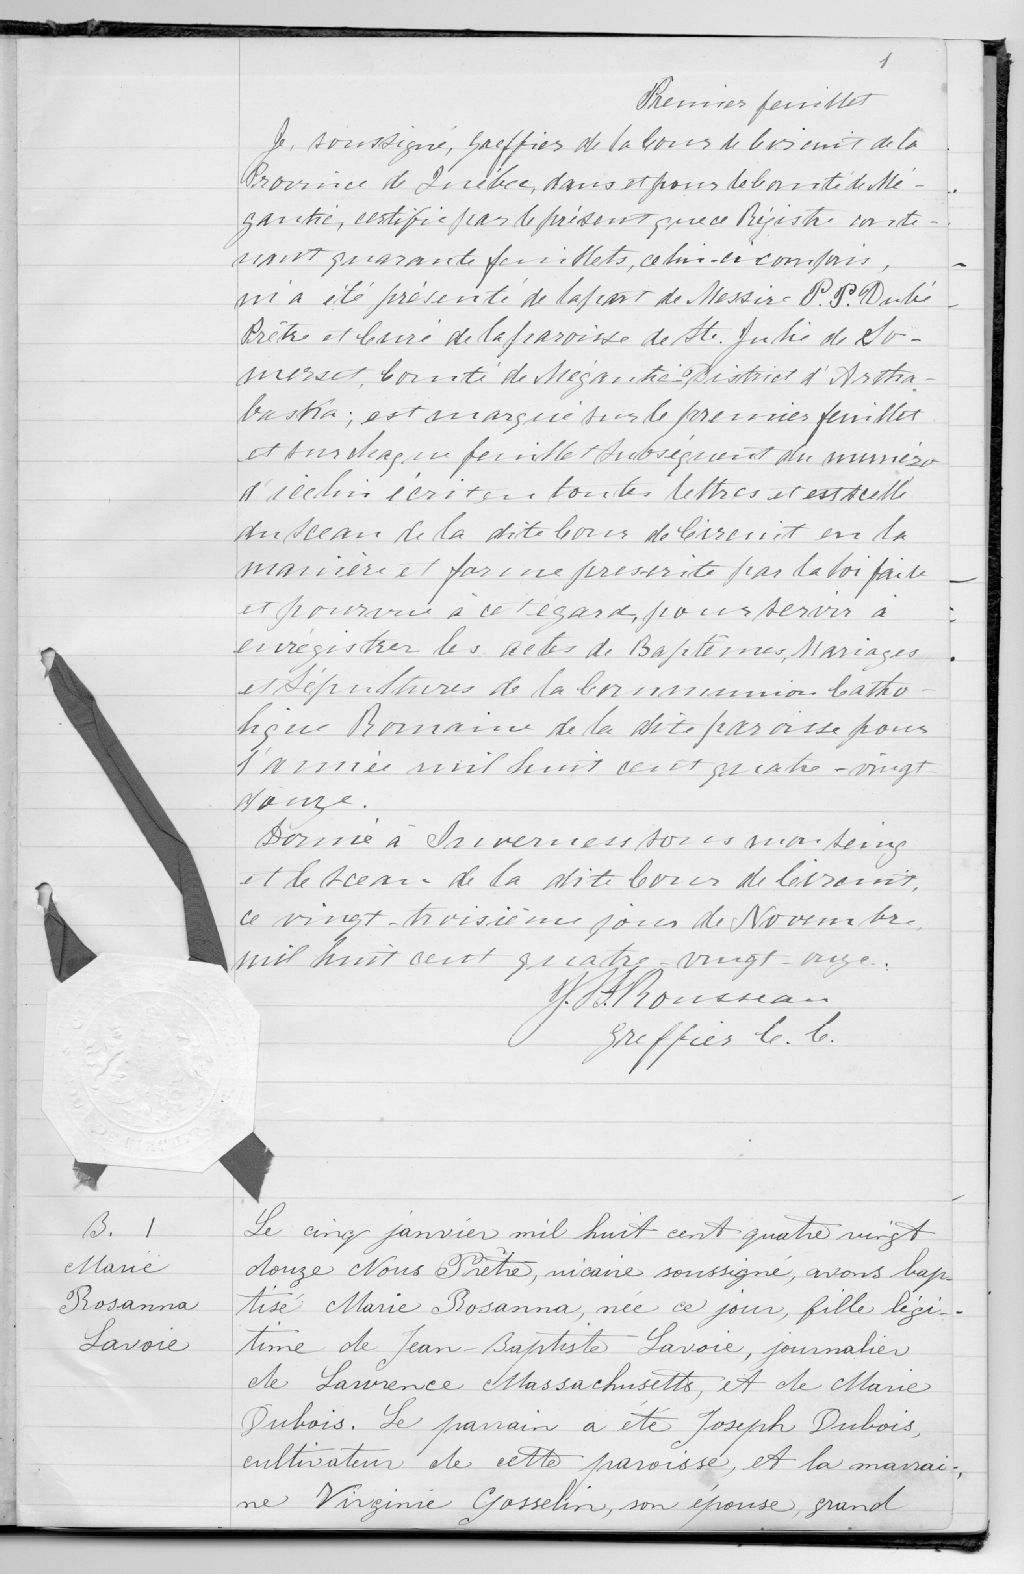 1
Premier feuillet
Je, soussigné, Greffier de la Cour de Circuit de la
Province de Québec, dans et pour le Comté de Mé-
gantic, certifie par le présent que ce Régistre conte-
nant quarante feuillets, celui-ci compris,
m'a été présenté de la part de Messire P. P. Dubé
Prêtre et Curé de la paroisse de Ste. Julie de So-
merset, Comté de Mégantic District d'Artha-
baska; est marqué sur le premier feuillet
et sur chaque feuillet subséquent du numéro
d'icelui écrit en toutes lettres et est scellé
du sceau de la dite Cour de Circuit en la
manière et forme prescrite par la loi faite
et pourvue à cet égard, pour servir à
enrégistrer les actes de Baptêmes, Mariages
et Sépultures de la Communion Catho-
lique Romaine de la dite paroisse pour
l'année mil huit cent quatre-vingt
douze.
Donné à Inverness sous mon seing
et le sceau de la dite Cour de Circuit,
ce vingt-troisième jour de Novembre,
mil huit cent quatre-vingt-onze.
Rousseau
Greffier C. C.
B. 1
Marie
Rosanna
Lavoie
Le cinq janvier mil huit cent quatre vingt
douze Nous Prêtre, vicaire soussigné, avons bap-
tisé Marie Rosanna, née ce jour, fille légi-
time de Jean-Baptiste Lavoie, journalier
de Lawrence Massachusetts, et de Marie
Dubois. Le parrain a été Joseph Dubois,
cultivateur de cette paroisse, et la marrai-
ne Virginie Gosselin, son épouse, grand